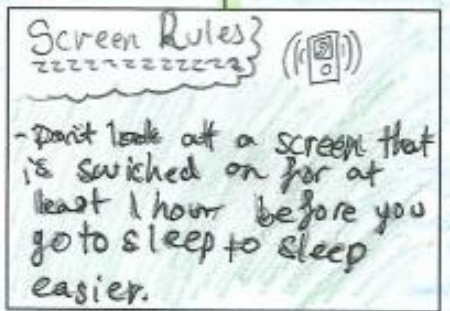 Screen Rules
zzzzzzzzzzzz
- Don't look at a screen that
is swiched on for at
least 1 hour before you
go to sleep to sleep
easier.